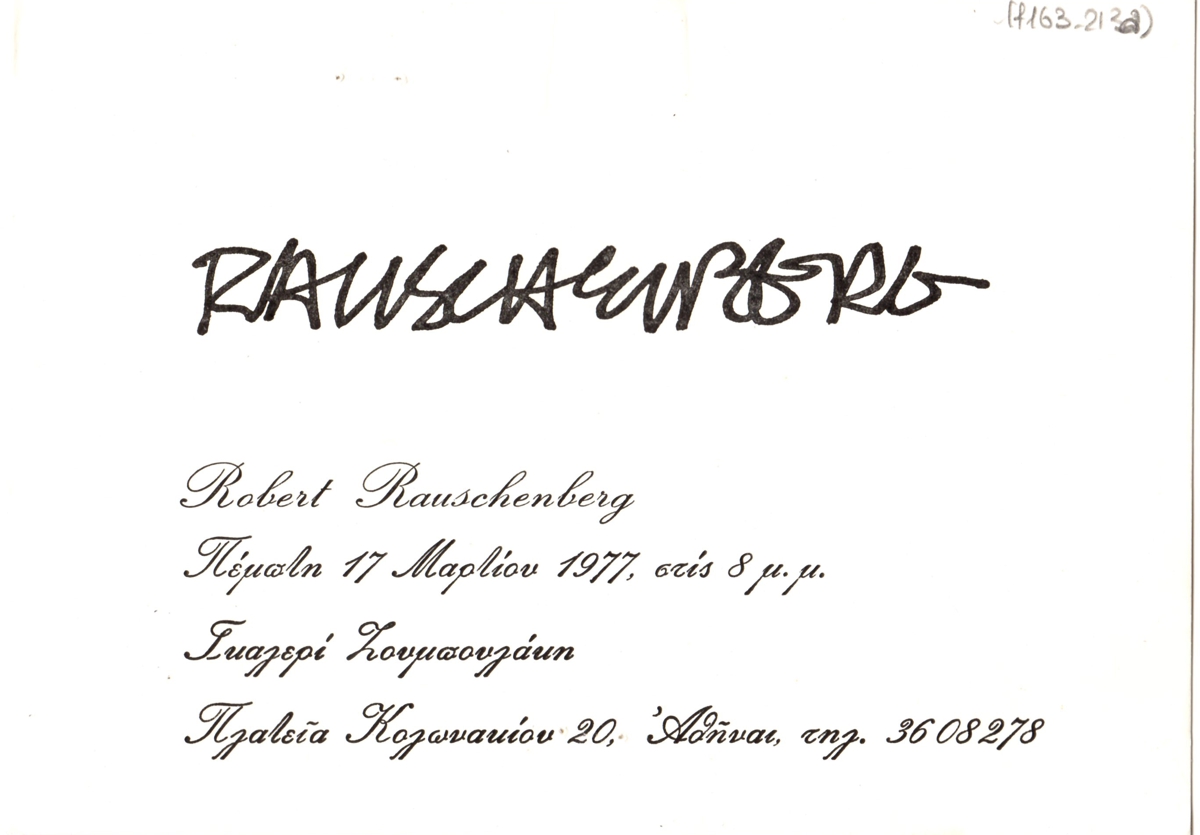 (f163-213a)
RAUSCHENBERG
Robert Rauschenberg
Πέμπτη 17 Μαρτίου 1977, στίς 8 μ.μ.
Γκαλερί Ζουμπουλάκη
Πλατεῖα Κολωνακίου 20, Ἀθῆναι, τηλ. 3608278